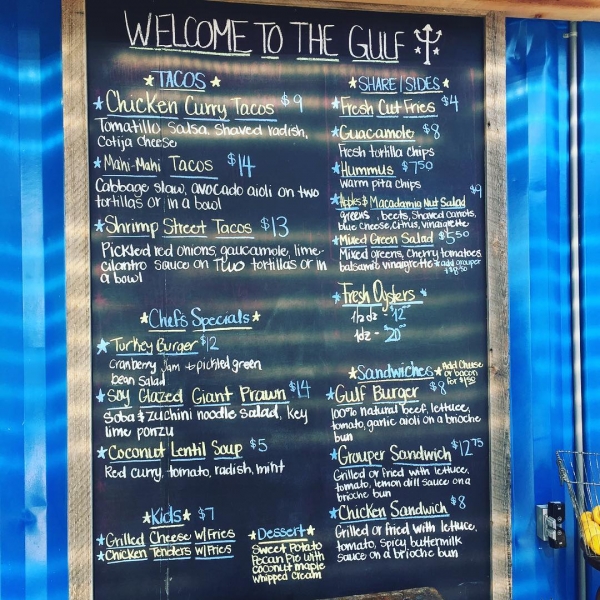 WELCOME TO THE GULF
TACOS
Chicken Curry Tacos $9
Tomatillo salsa, shaved radish,
Cotija cheese
Mahi-Mahi Tacos $14
Cabbage slaw, avocado aioli on two
tortillas or in a bowl
Shrimp Street Tacos $13
Pickled red onions, guacamole, lime-
cilantro sauce on Two tortillas or in
a bowl
Chefs Specials
Turkey Burger $12
Cranberry Jam + pickled green
bean salad
Soy Glazed Giant Prawn $14
Soba & zuchini noodle salad, key
lime ponzu
Coconut Lentil Soup $5
Red curry, tomato, radish, mint
Kids $7
Grilled Cheese w/Fries
Chicken Tenders w/Fries
Dessert
Sweet Potato
Pecan Pie with
coconut maple
whipped cream
SHARE/SIDES
Fresh Cut Fries $4
Guacamole $8
Fresh tortilla chips
Hummus $7.50
Warm pita chips
Apples & Macadamia Nut Salad $9
greens, beets, shaved carrots,
blue cheese, citrus, vinaigrette
Mixed Green Salad $5.50
Mixed greens, cherry tomatoes
balsamic vinaigrette *add grouper
+$8.50
Fresh Oysters
1/2 dz - $12
1dz - $20
Sandwiches
Add Cheese
or bacon
for $1.50
Gulf Burger $8
100% natural beef, lettuce,
tomato, garlic aioli on a brioche
bun
Grouper Sandwich $12.75
Grilled or fried with lettuce,
tomato, lemon dill sauce on a
brioche bun
Chicken Sandwich $8
Grilled or fried with lettuce,
tomato, spicy buttermilk
sauce on a brioche bun